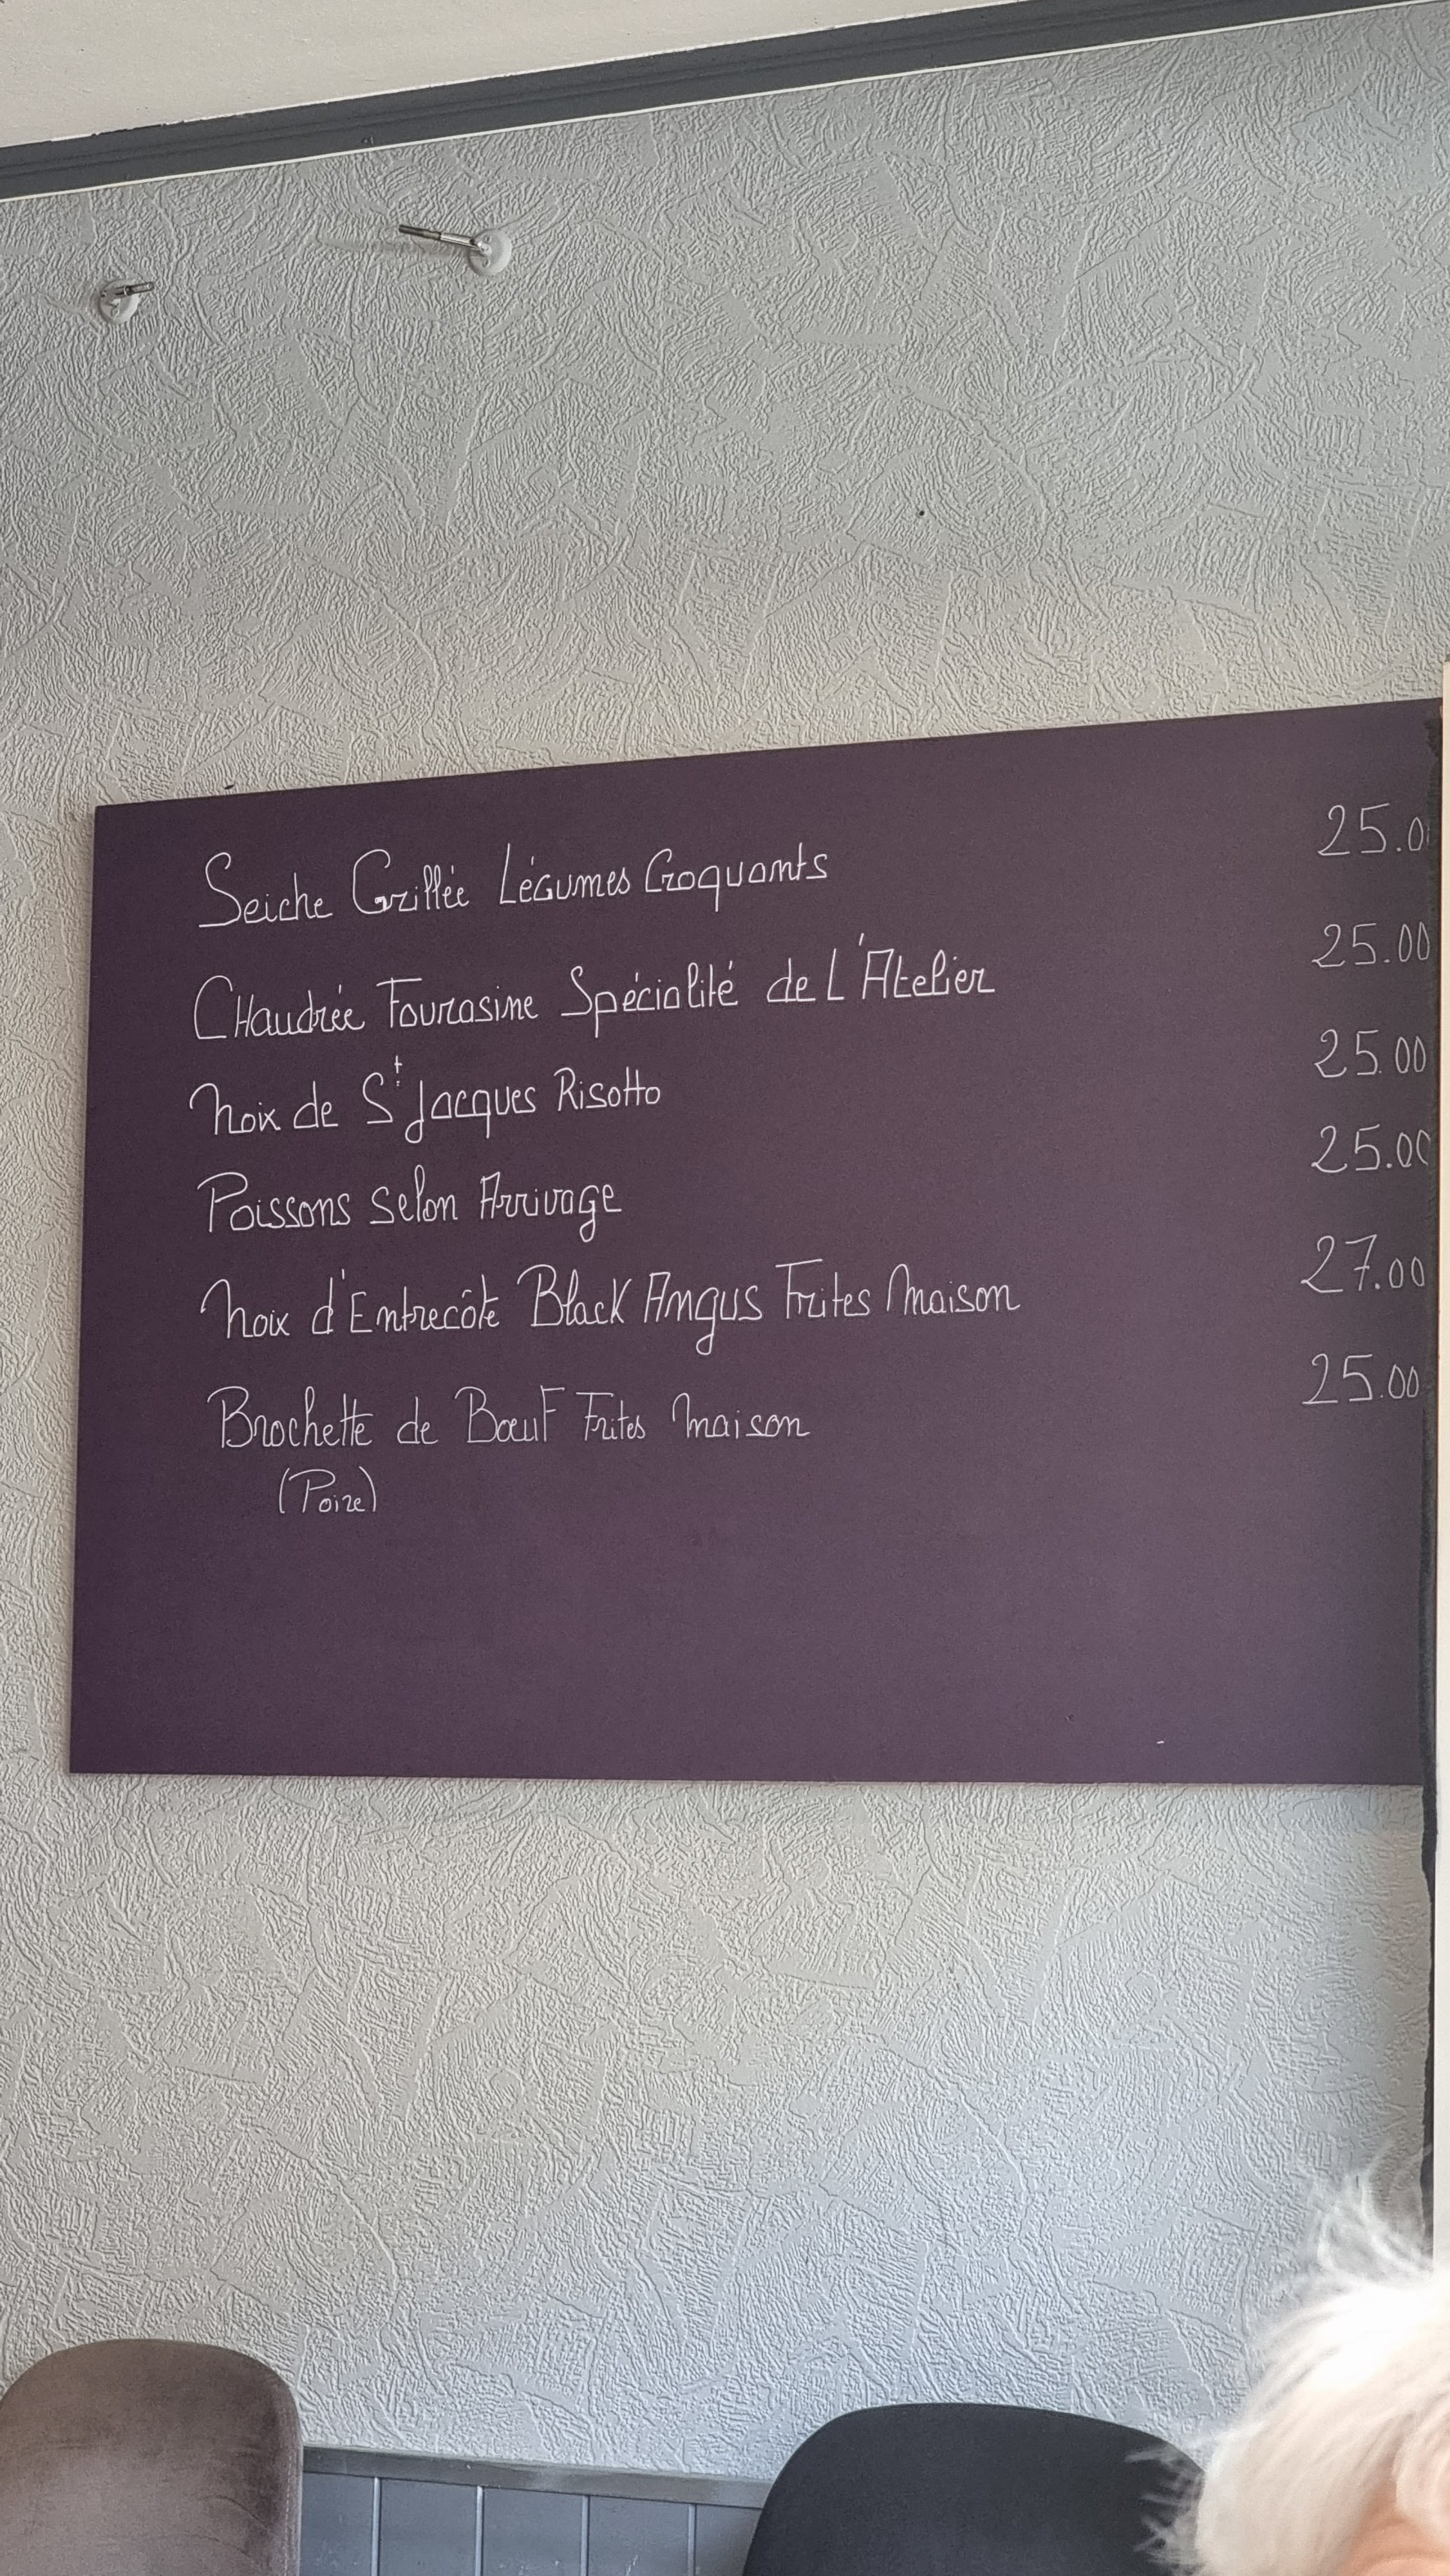 Seiche Grillée Légumes Croquants 25.0
Chaudrée Fourasine Spécialité de L'Atelier 25.00
Noix de St Jacques Risotto 25.00
Poissons selon Arrivage 25.00
Noix d'Entrecôte Black Angus Frites Maison 27.00
Brochette de Bœuf Frites Maison 25.00
(Poire)